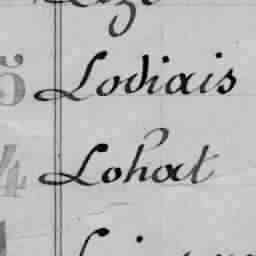 5 Lodiais
4 Lohat